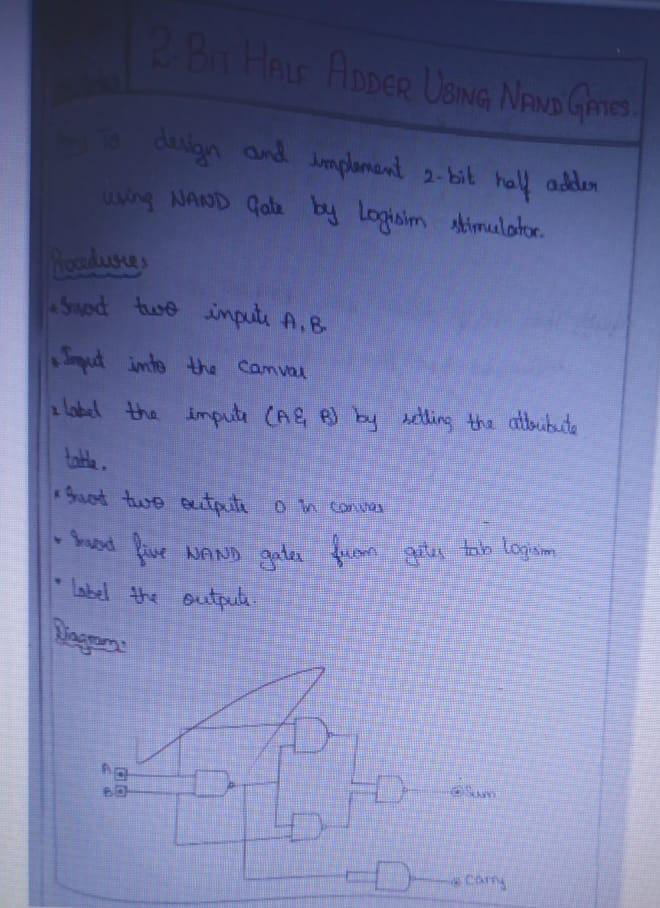 2-BIT HALF ADDER USING NAND GATES.
To design and implement 2-bit half adder
using NAND Gate by Logisim stimulator.
Procedures
Insert two inputs A, B
Input into the canvas
label the inputs (A & B) by setting the attribute
table.
Insert two outputs O in canvas
Insert five NAND gates from gates tab logism
Label the outputs.
Diagram:
A
B
Sum
Carry